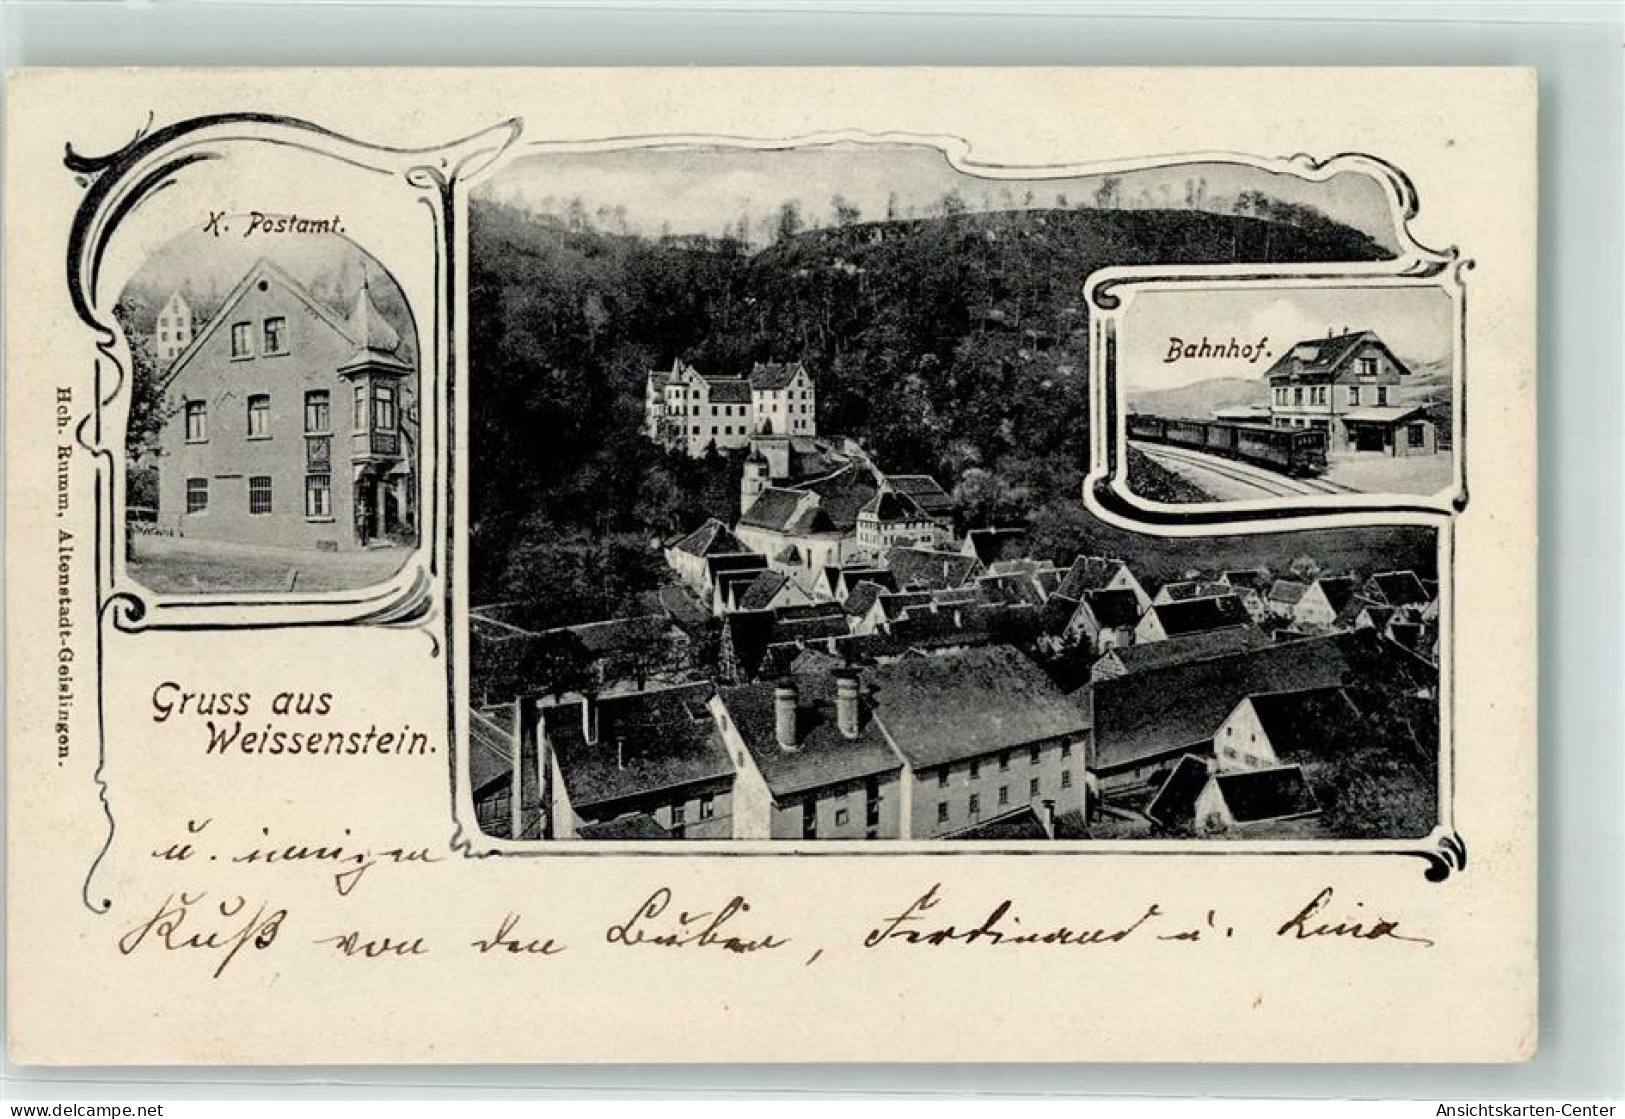 K. Postamt.
Bahnhof.
Hch. Rumm, Altenstadt-Geislingen.
Gruss aus
Weissenstein.
u. innigen
Kuß von den Buben, Ferdinand u. Lina
www.delcampe.net
Ansichtskarten-Center